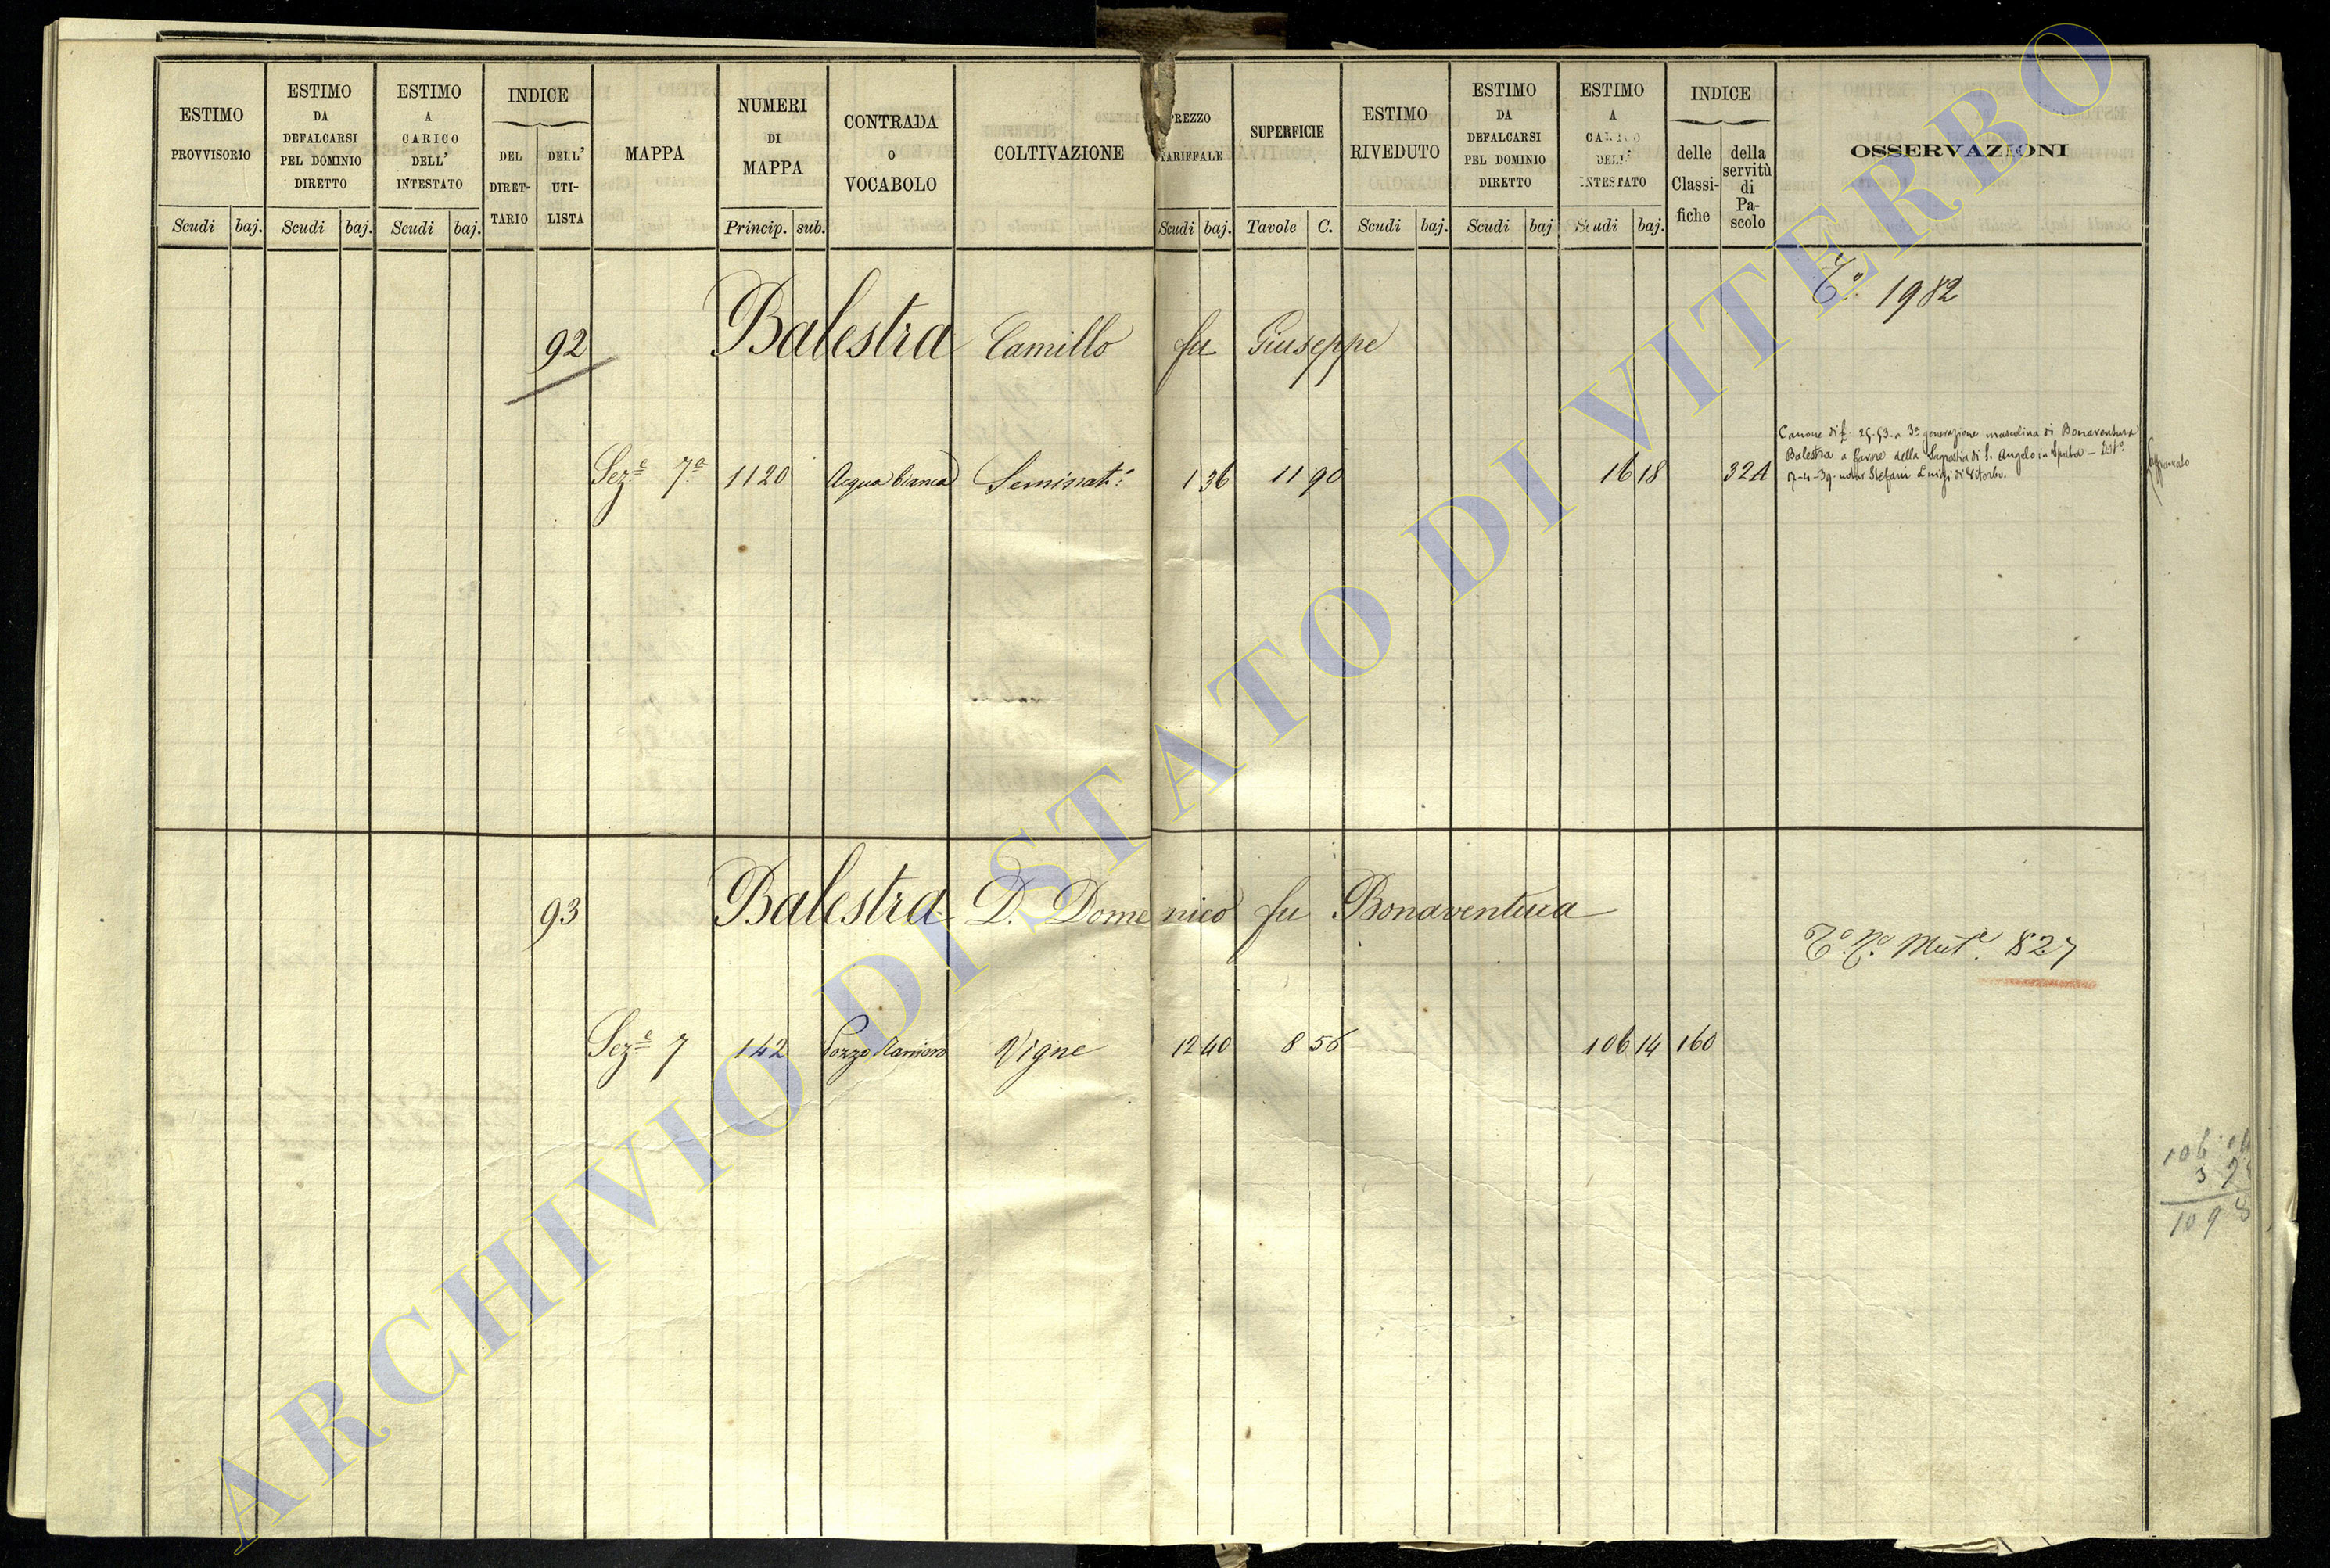 ESTIMO PROVVISORIO
Scudi baj.
ESTIMO DA DEFALCARSI PEL DOMINIO DIRETTO
Scudi baj.
ESTIMO A CARICO DELL' INTESTATO
Scudi baj.
INDICE
DEL DIRET- TARIO
DELL' UTI- LISTA
MAPPA
NUMERI DI MAPPA
Princip. sub.
CONTRADA O VOCABOLO
COLTIVAZIONE
PREZZO TARIFFALE
Scudi baj.
SUPERFICIE
Tavole C.
ESTIMO RIVEDUTO
Scudi baj.
ESTIMO DA DEFALCARSI PEL DOMINIO DIRETTO
Scudi baj
ESTIMO A CARICO DELL' INTESTATO
Scudi baj.
INDICE
delle Classi- fiche
della servitù di Pa- scolo
OSSERVAZIONI
Tº. 1982
92 Balestra Camillo fu Giuseppe
Canone di £ 25.53. a 3ª generazione mascolina di Bonaventura
Balestra a favore della Sagrestia di S. Angelo in Spata – Istº
7-4-39. notar Stefani Luigi di Viterbo.
Affrancato
Sezᵉ 7ª 1120 Acqua bianca Seminatº: 1 36 11 90 16 18 324
93 Balestra D. Domenico fu Bonaventura
Tº. Nº. Mutᵉ. 827
Sezᵉ 7 142 Pozzo Raniero Vigne 12 40 8 56 106 14 160
106
3
109
ARCHIVIO DI STATO DI VITERBO